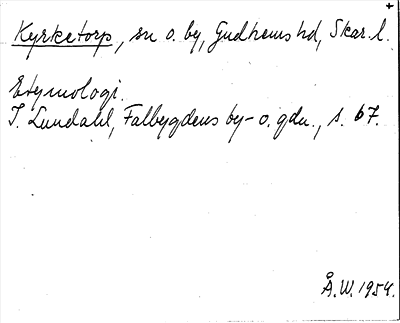 +
Kyrketorp, sn o. by, Gudhems hd, Skar. l.
Etymologi.
I. Lundahl, Falbygdens by- o. gdn., s. 67.
Å.W. 1954.